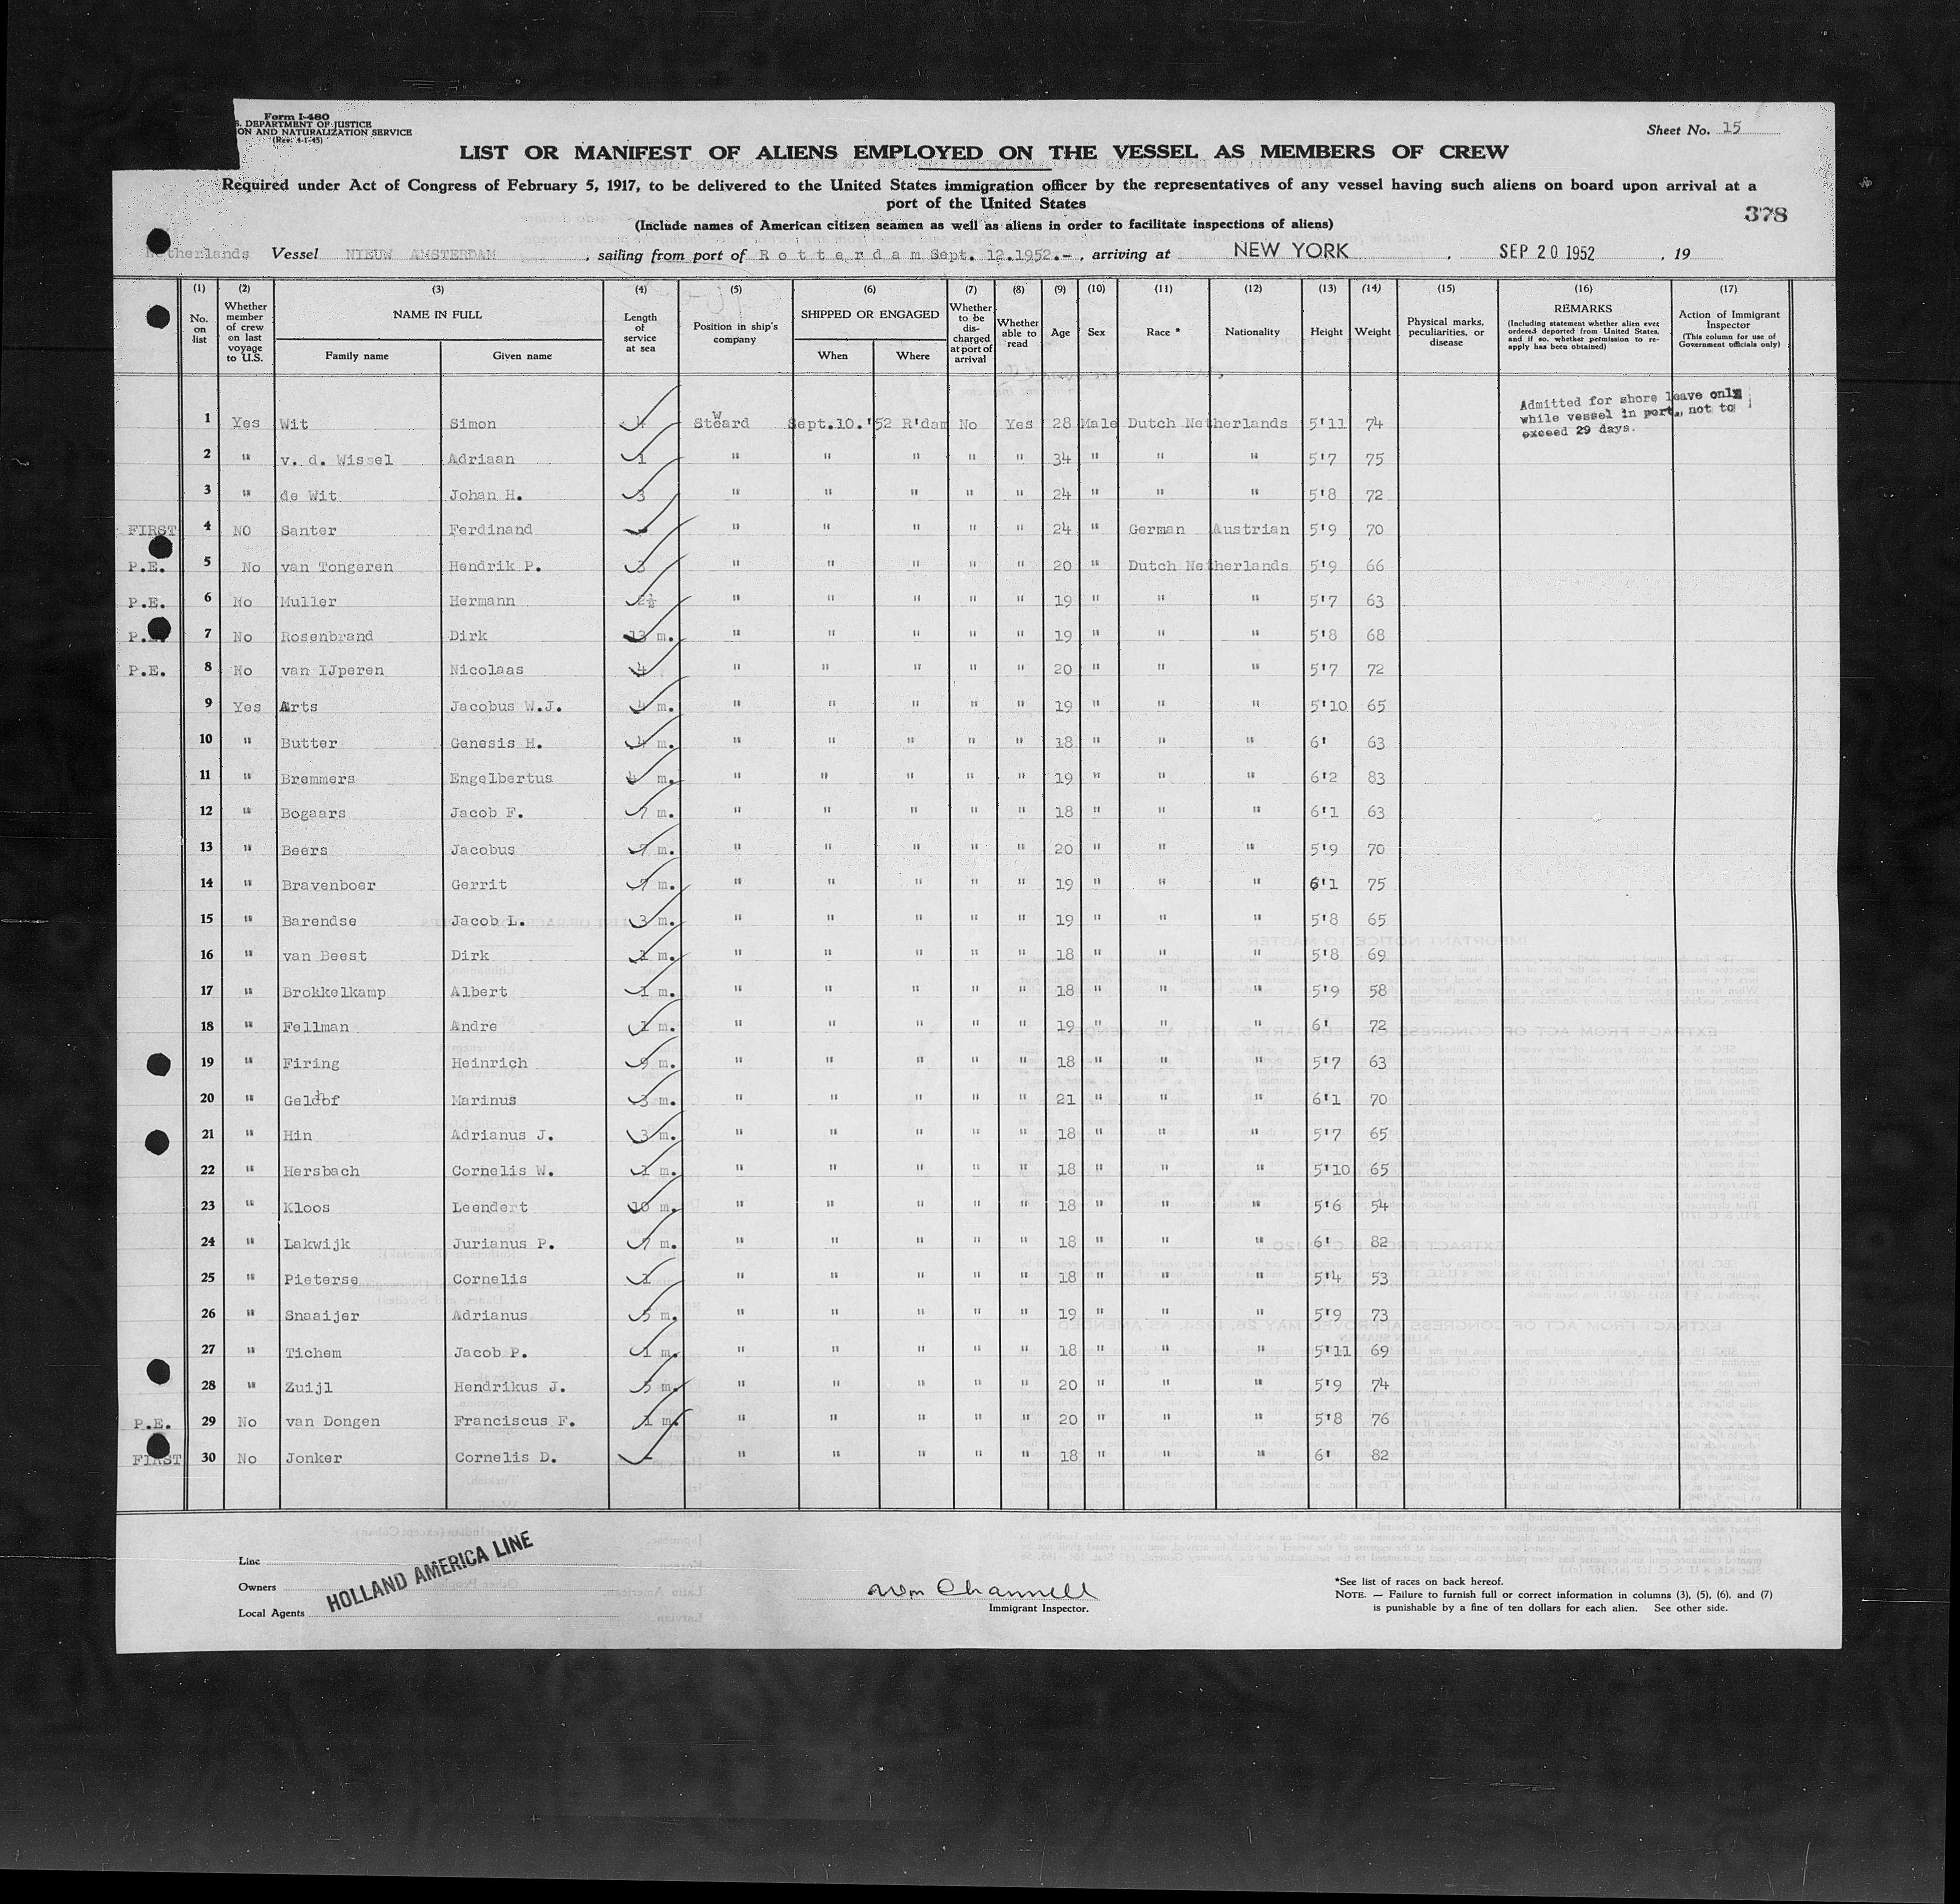 Form I-480
S. DEPARTMENT OF JUSTICE
ON AND NATURALIZATION SERVICE
(Rev. 4-1-45)
Sheet No. 15
LIST OR MANIFEST OF ALIENS EMPLOYED ON THE VESSEL AS MEMBERS OF CREW
Required under Act of Congress of February 5, 1917, to be delivered to the United States immigration officer by the representatives of any vessel having such aliens on board upon arrival at a
port of the United States
378
(Include names of American citizen seamen as well as aliens in order to facilitate inspections of aliens)
Netherlands Vessel NIEUW AMSTERDAM , sailing from port of Rotterdam Sept. 12.1952.- , arriving at NEW YORK , SEP 20 1952 , 19
(1) (2) (3) (4) (5) (6) (7) (8) (9) (10) (11) (12) (13) (14) (15) (16) (17)
No. on list
Whether member of crew on last voyage to U.S.
NAME IN FULL
Family name Given name
Length of service at sea
Position in ship's company
SHIPPED OR ENGAGED
When Where
Whether to be discharged at port of arrival
Whether able to read
Age Sex Race * Nationality Height Weight
Physical marks, peculiarities, or disease
REMARKS
(Including statement whether alien ever ordered deported from United States, and if so, whether permission to reapply has been obtained)
Action of Immigrant Inspector
(This column for use of Government officials only)
Admitted for shore leave only
while vessel in port, not to
exceed 29 days.
1 Yes Wit Simon 4 Steward Sept.10.'52 R'dam No Yes 28 Male Dutch Netherlands 5'11 74
2 " v. d. Wissel Adriaan 1 " " " " " 34 " " " 5'7 75
3 " de Wit Johan H. 3 " " " " " 24 " " " 5'8 72
FIRST 4 NO Santer Ferdinand - " " " " " 24 " German Austrian 5'9 70
P.E. 5 No van Tongeren Hendrik P. 3 " " " " " 20 " Dutch Netherlands 5'9 66
P.E. 6 No Muller Hermann 2½ " " " " " 19 " " " 5'7 63
P.E. 7 No Rosenbrand Dirk 13 m. " " " " " 19 " " " 5'8 68
P.E. 8 No van IJperen Nicolaas 4 " " " " " 20 " " " 5'7 72
9 Yes Arts Jacobus W.J. 4 m. " " " " " 19 " " " 5'10 65
10 " Butter Genesis H. 4 m. " " " " " 18 " " " 6' 63
11 " Bremmers Engelbertus 4 m. " " " " " 19 " " " 6'2 83
12 " Bogaars Jacob F. 7 m. " " " " " 18 " " " 6'1 63
13 " Beers Jacobus 7 m. " " " " " 20 " " " 5'9 70
14 " Bravenboer Gerrit 7 m. " " " " " 19 " " " 6'1 75
15 " Barendse Jacob L. 3 m. " " " " " 19 " " " 5'8 65
16 " van Beest Dirk 1 m. " " " " " 18 " " " 5'8 69
17 " Brokkelkamp Albert 1 m. " " " " " 18 " " " 5'9 58
18 " Fellman Andre 1 m. " " " " " 19 " " " 6' 72
19 " Firing Heinrich 9 m. " " " " " 18 " " " 5'7 63
20 " Geldhof Marinus 3 m. " " " " " 21 " " " 6'1 70
21 " Hin Adrianus J. 3 m. " " " " " 18 " " " 5'7 65
22 " Hersbach Cornelis W. 1 m. " " " " " 18 " " " 5'10 65
23 " Kloos Leendert 10 m. " " " " " 18 " " " 5'6 54
24 " Lakwijk Jurianus P. 7 m. " " " " " 18 " " " 6' 82
25 " Pieterse Cornelis 1 " " " " " 18 " " " 5'4 53
26 " Snaaijer Adrianus 5 m. " " " " " 19 " " " 5'9 73
27 " Tichem Jacob P. 1 m. " " " " " 18 " " " 5'11 69
28 " Zuijl Hendrikus J. 5 m. " " " " " 20 " " " 5'9 74
P.E. 29 No van Dongen Franciscus F. 1 m. " " " " " 20 " " " 5'8 76
FIRST 30 No Jonker Cornelis D. - " " " " " 18 " " " 6' 82
Line
Owners
Local Agents
HOLLAND AMERICA LINE
Wm Channell
Immigrant Inspector.
*See list of races on back hereof.
NOTE. — Failure to furnish full or correct information in columns (3), (5), (6), and (7)
is punishable by a fine of ten dollars for each alien. See other side.